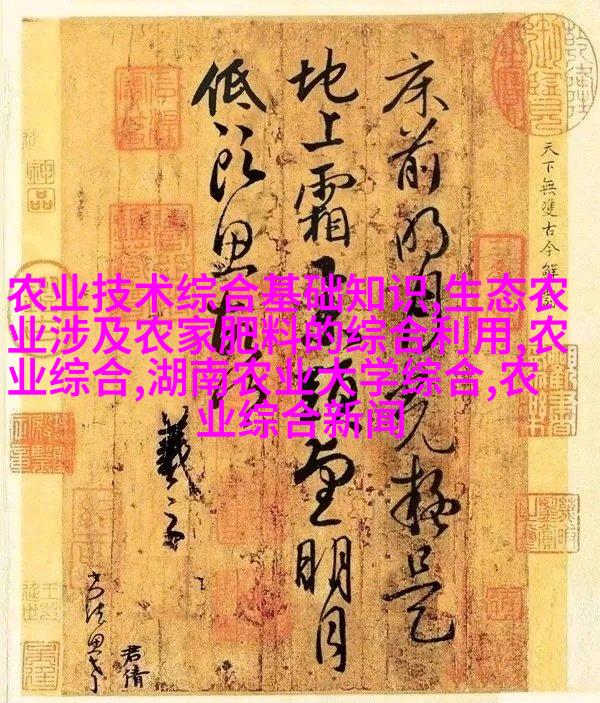 农业技术综合基础知识,生态农
业涉及农家肥料的综合利用,农
业综合,湖南农业大学综合,农
业综合新闻
床前明月光疑是
地上霜举头望明月
低头思故乡
羲之
天下無雙古今鮮
神品
君倩